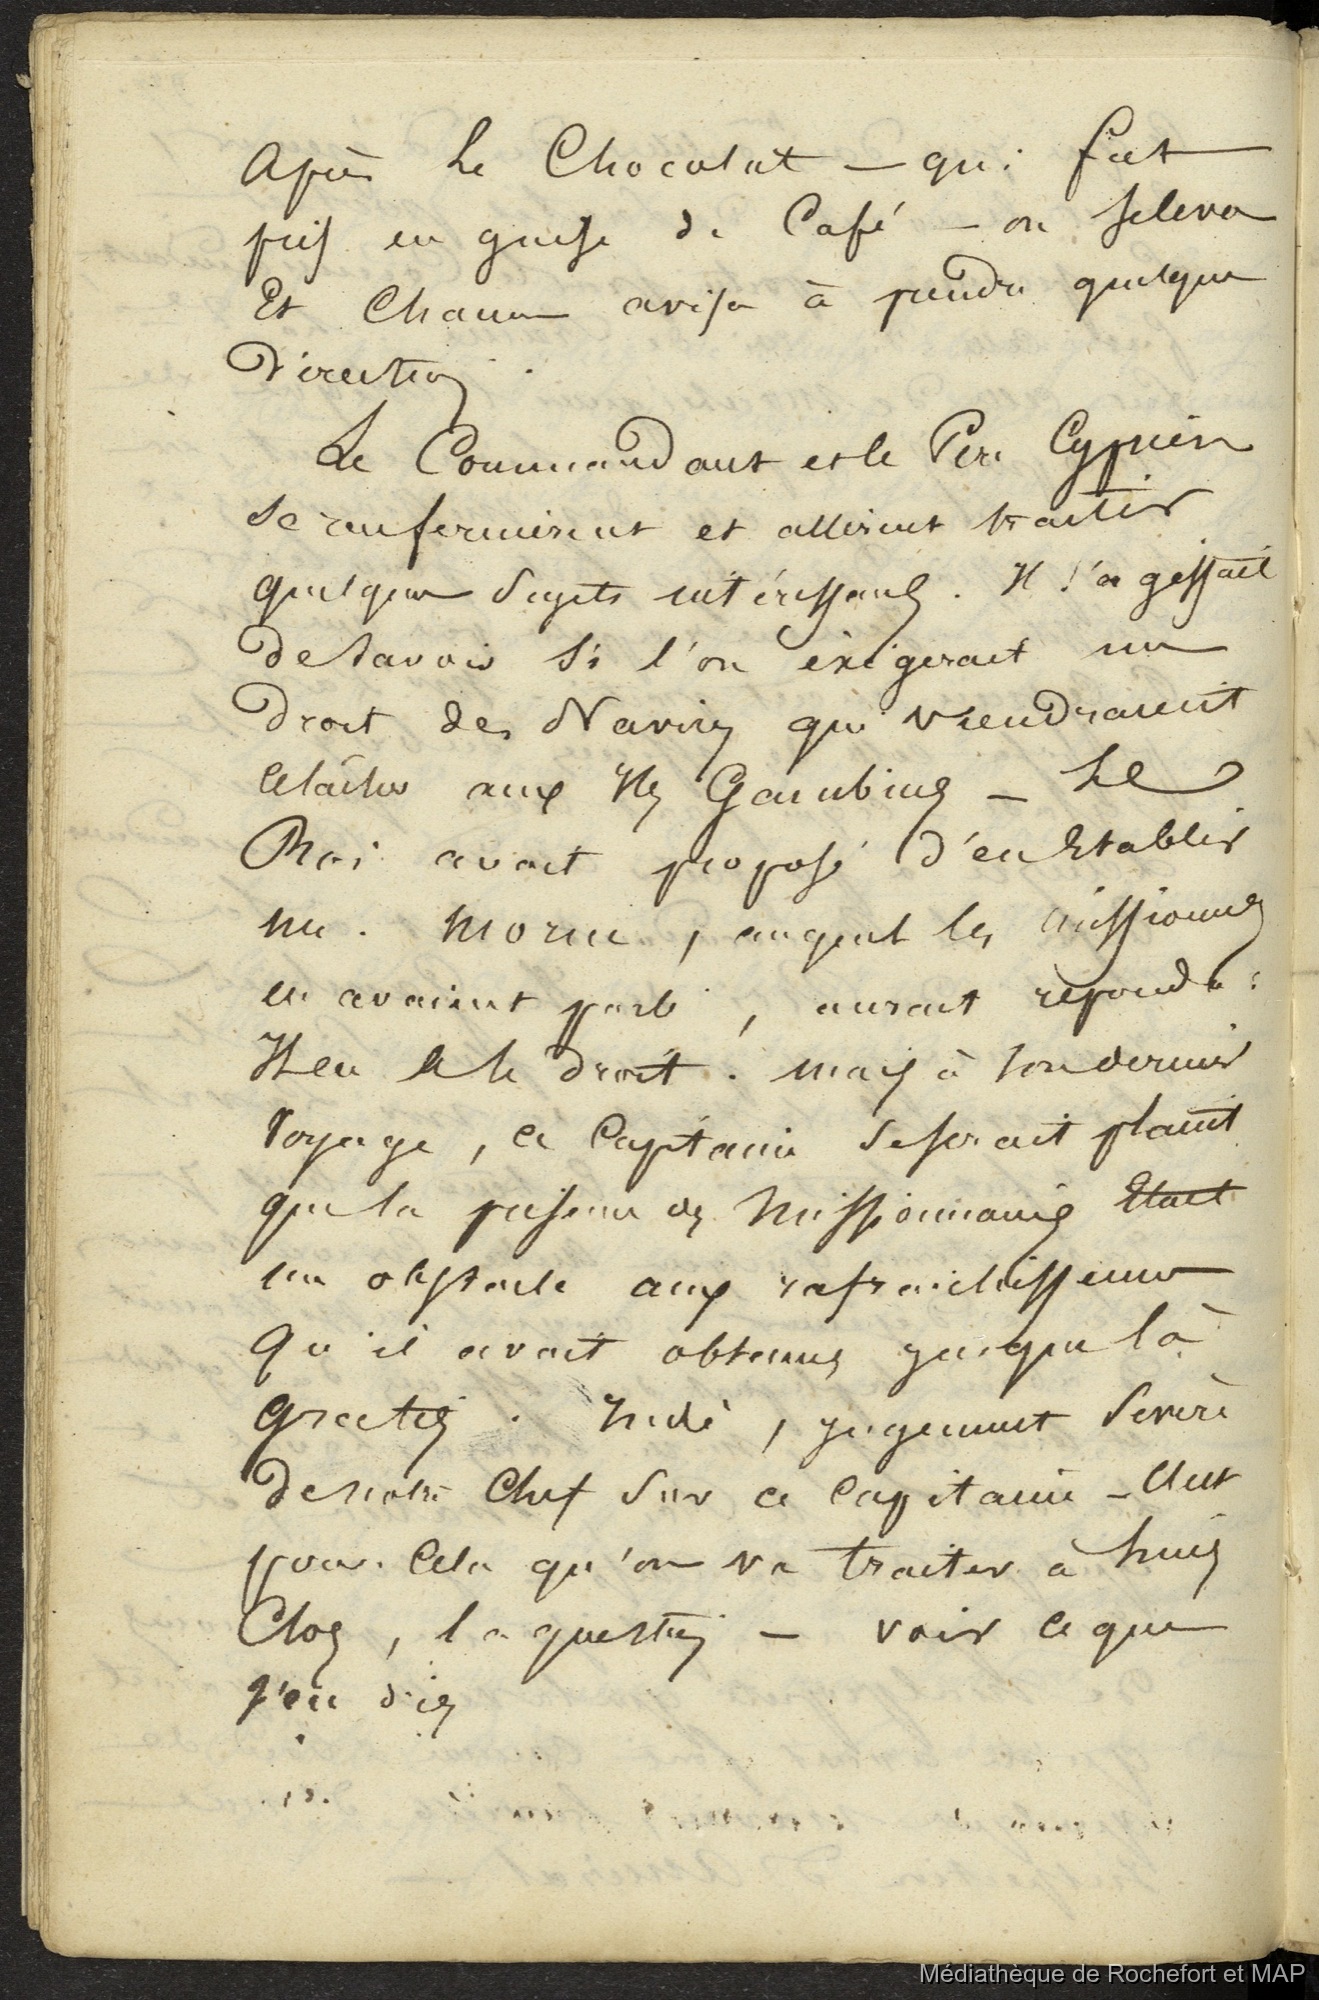 après le Chocolat — qui fut
pris en guise de Café — on se leva
Et Chacun avisa à prendre quelque
Direction.
Le Commandant et le Père Cyprien
se renfermèrent et allèrent traiter
quelques sujets intéressans. Il s'agissait
de savoir si l'on exigerait un
Droit des Navires qui viendraient
relâcher aux Iles Gambier — Le
Roi avait proposé d'en Etablir
un. , auquel les
en avaient parlé, aurait répondu :
Il en a le droit. mais à son dernier
voyage, ce Capitaine se serait plaint
que la présence des Missionnaires Etait
un obstacle aux rafraichissemens
qu'il avait obtenus jusque là
gratis. Indè, jugement sévère
de notre Chef sur ce Capitaine — C'est
pour cela qu'on va traiter à huis
Clos, la question — voir ce que
j'en dis
Médiathèque de Rochefort et MAP